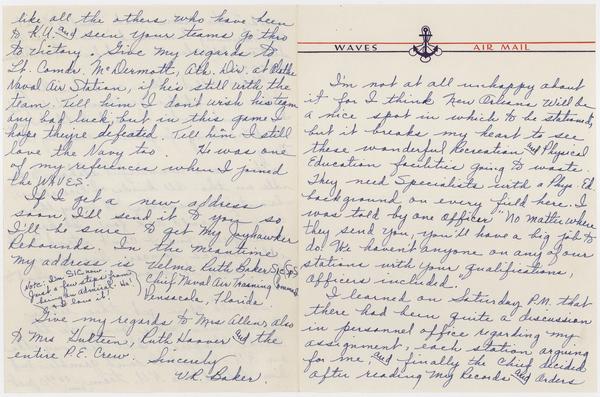 like all the others who have been
to K.U. and seen your teams go thro
to victory. Give my regards to
Lt. Comdr. McDermott, Ath. Dir. at Olathe
Naval Air Station, if he's still with the
team. Tell him I don't wish his team
any bad luck, but in this game I
hope they're defeated. Tell him I still
love the Navy too. He was one
of my references when I joined
the WAVES.
If I get a new address
soon, I'll send it to you so
I'll be sure to get my Jayhawker
Rebounds. In the meantime
my address is Velma Ruth Baker
Chief Naval Air Training Command
Pensacola, Florida
Note: I'm S1C now
Just a few steps from
being an admiral. Ha!
I love it!
Give my regards to Mrs Allen, also
to Mrs Hulteen, Ruth Hoover and the
entire P.E. Crew. Sincerely
V.R. Baker.
WAVES AIR MAIL
I'm not at all unhappy about
it for I think New Orleans will be
a nice spot in which to be stationed,
but it breaks my heart to see
these wonderful Recreation and Physical
Education facilities going to waste.
They need Specialists with a Phys. Ed
background on every field here. I
was told by one officer "No matter where
they send you, you'll have a big job to
do! We haven't anyone on any of our
stations with your qualifications,
officers included."
I learned on Saturday P.M. that
there had been quite a discussion
in personnel office regarding my
assignment, each station arguing
for me, and finally the Chief decided
after reading my Records and Orders